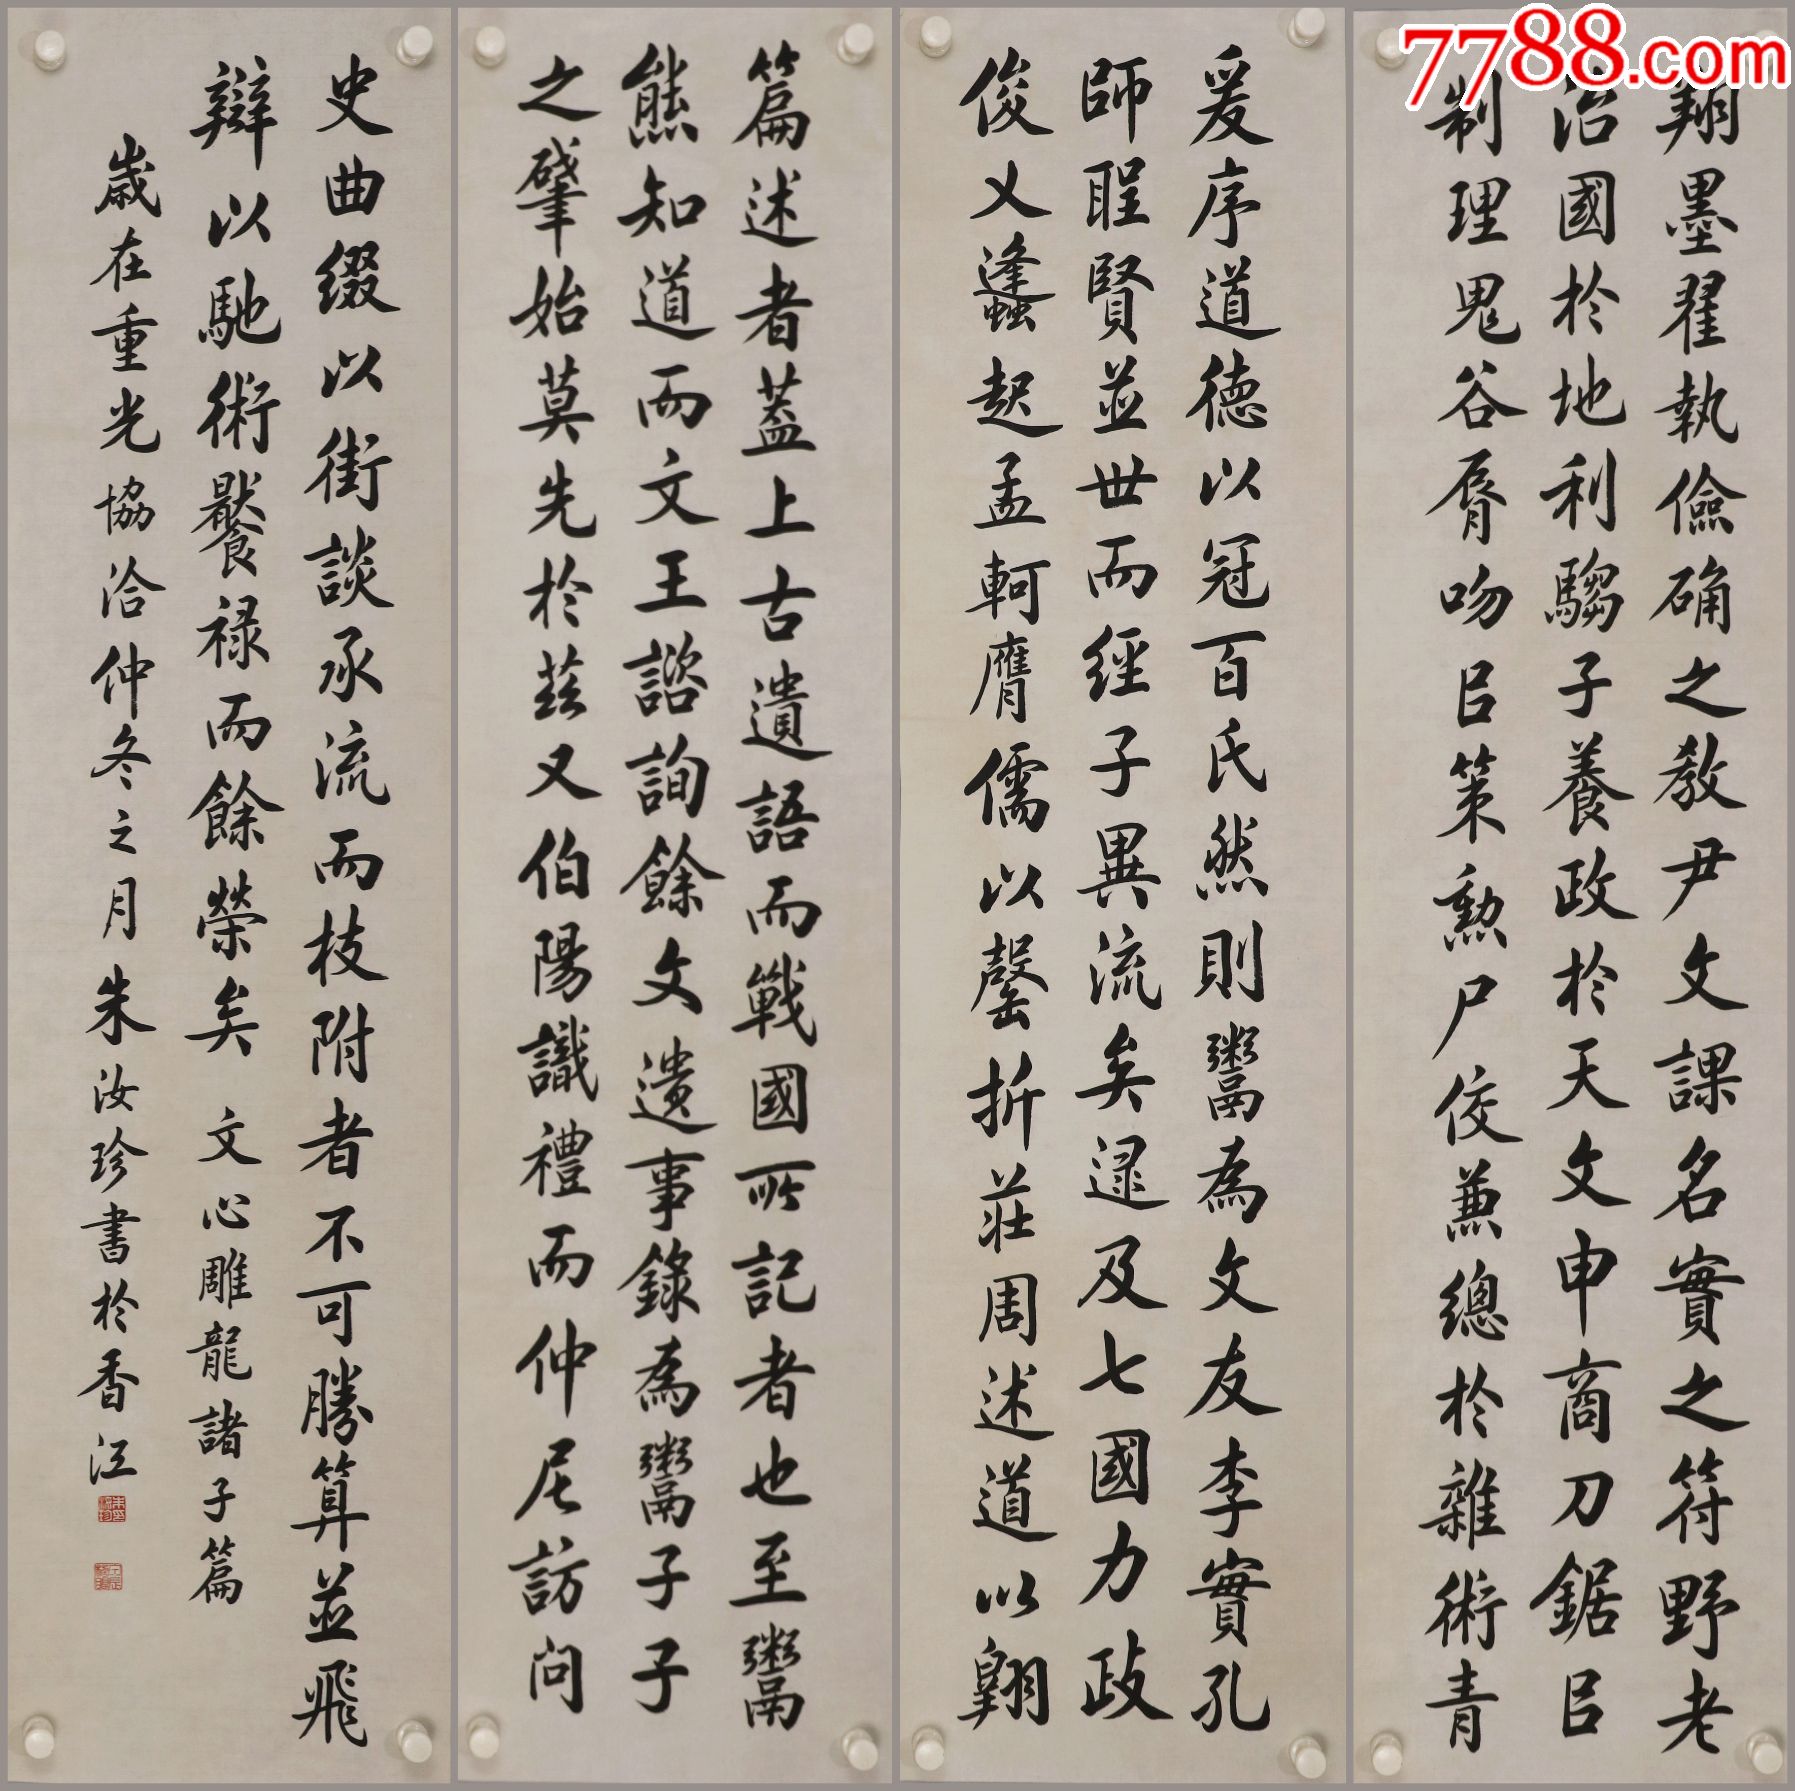 7788.com
篇述者蓋上古遺語而戰國所記者也至鬻
熊知道而文王諮詢餘文遺事錄為鬻子子
之肇始莫先於茲又伯陽識禮而仲尼訪問
爰序道德以冠百氏然則鬻為文友李實孔
師聖賢並世而經子異流矣逮及七國力政
俊乂蠭起孟軻膺儒以罄折莊周述道以翱
翔墨翟執儉确之教尹文課名實之符野老
治國於地利騶子養政於天文申商刀鋸㠯
制理鬼谷脣吻㠯策勲尸佼兼總於雜術青
史曲綴以街談承流而枝附者不可勝算並飛
辯以馳術饜祿而餘榮矣 文心雕龍諸子篇
歲在重光協洽仲冬之月朱汝珍書於香江